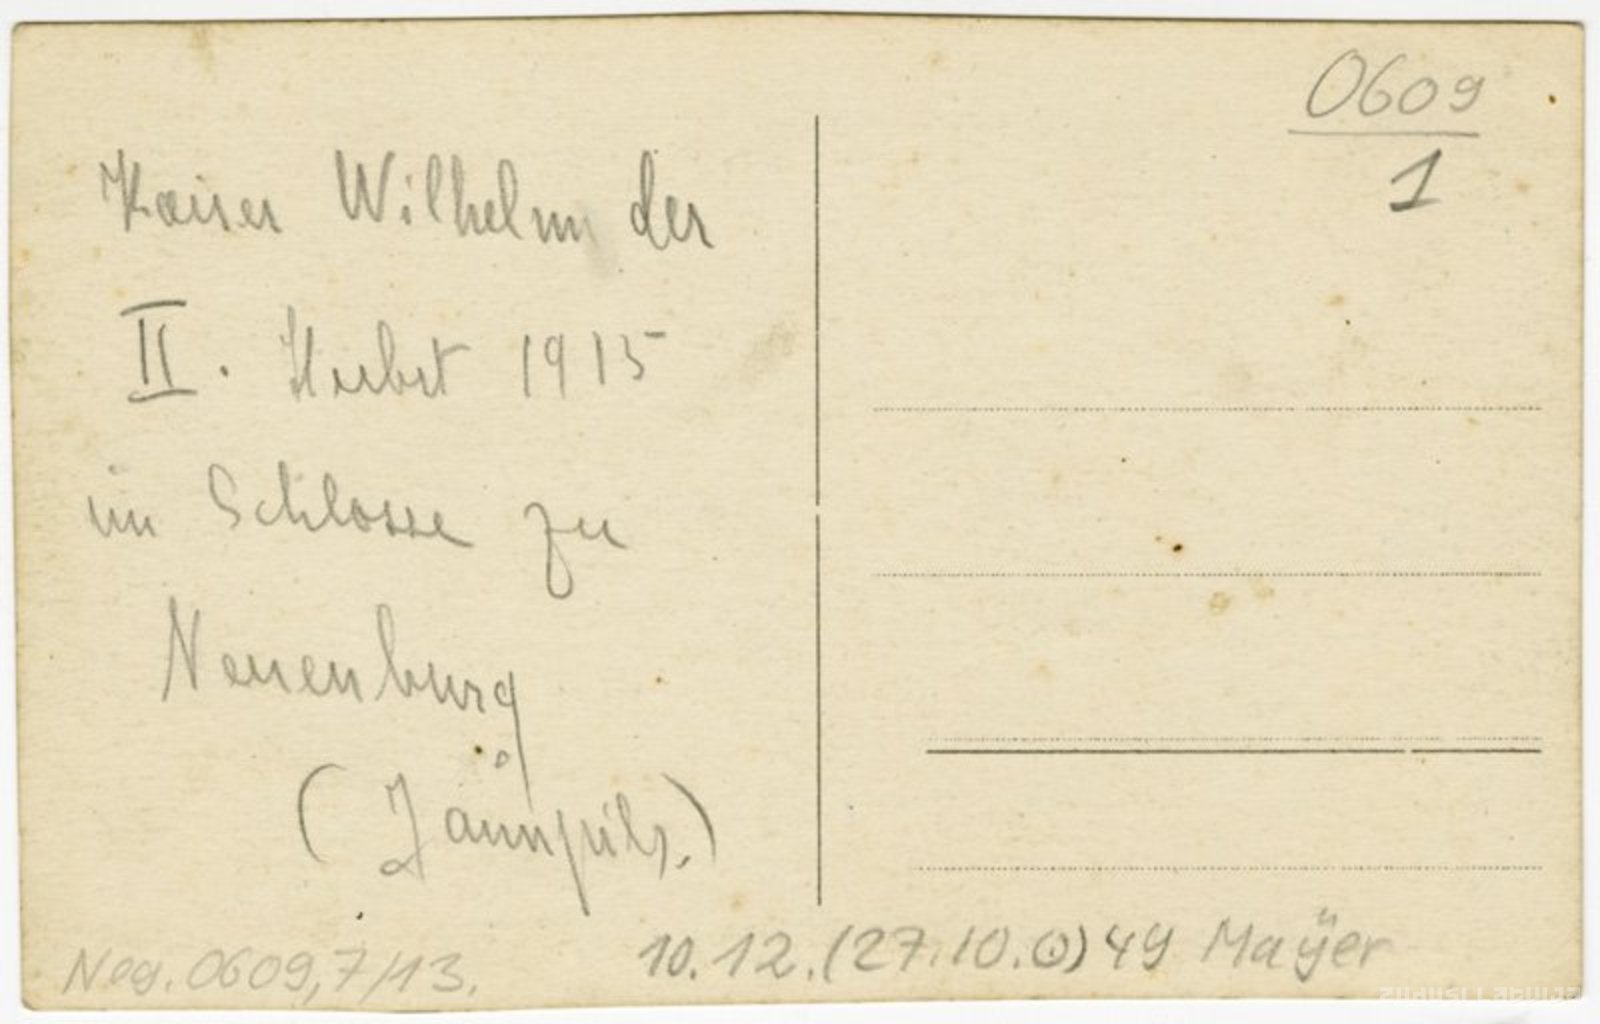 0609
1
Kaiser Wilhelm der
II. Herbst 1915
im Schlosse zu
Neuenburg
(Jaunpils.)
Neg. 0609,7/13.
10.12.(27.10.0)49 Mayer
zudusi Latvija